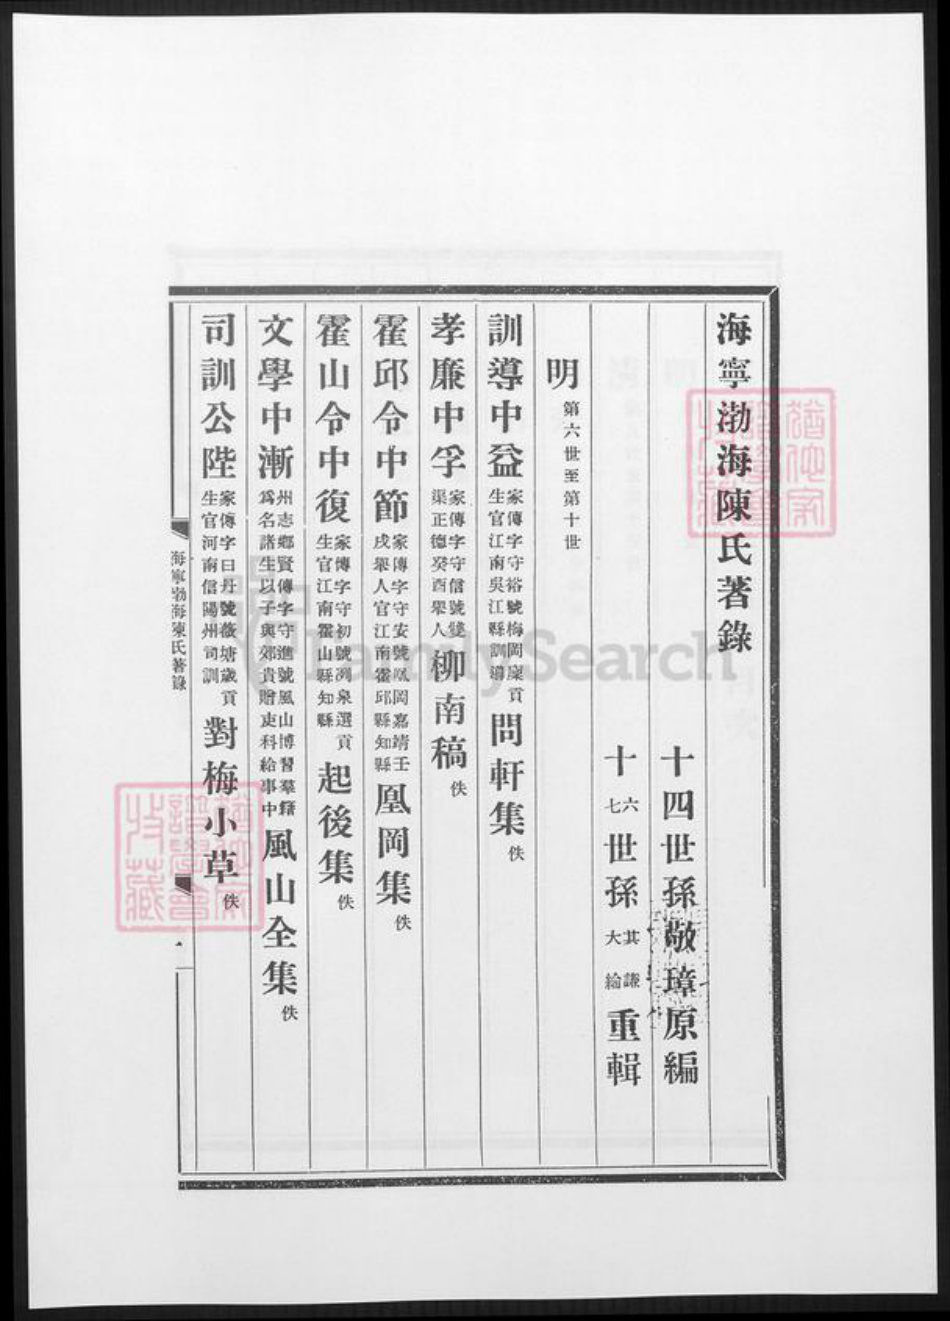 海寧渤海陳氏著錄
十四世孫敬璋原編
十六七世孫其謙大綸重輯
明第六世至第十世
訓導中益家傳字守裕號梅岡廩貢生官江南吳江縣訓導問軒集佚
孝廉中孚家傳字守信號雙渠正德癸酉舉人柳南稿佚
霍邱令中節家傳字守安號凰岡嘉靖壬戌舉人官江南霍邱縣知縣凰岡集佚
霍山令中復家傳字守初號冽泉選貢生官江南霍山縣知縣起後集佚
文學中漸州志鄉賢傳字守進號風山博習羣籍爲名諸生以子與郊貴贈吏科給事中風山全集佚
司訓公陛家傳字曰丹號薇塘歲貢生官河南信陽州司訓對梅小草佚
海寧渤海陳氏著錄
一
FamilySearch